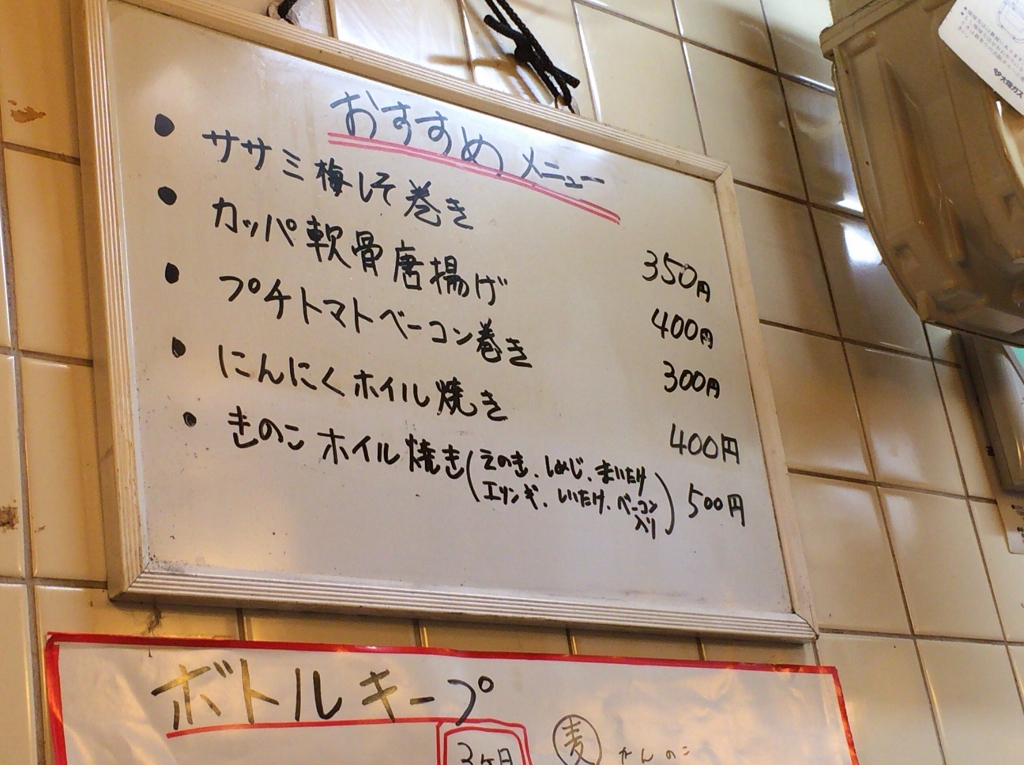 おすすめメニュー
・ササミ梅しそ巻き 350円
・カッパ軟骨唐揚げ 400円
・プチトマトベーコン巻き 300円
・にんにくホイル焼き 400円
・きのこホイル焼き(えのき、しめじ、まいたけ
エリンギ、しいたけ、ベーコン
入り) 500円
ボトルキープ
3ヶ月
麦 かんのこ
大阪ガス